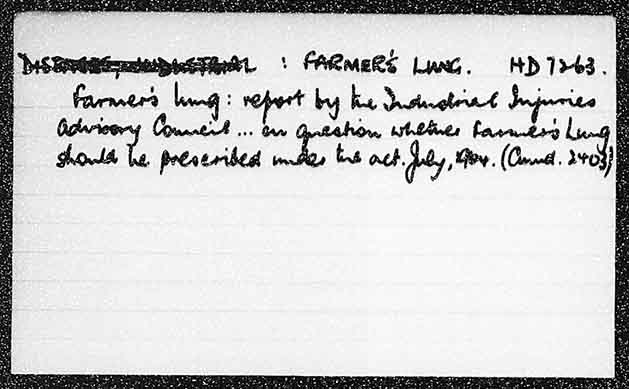 DISEASES, INDUSTRIAL : FARMER'S LUNG. HD 7263.
Farmer's lung: report by the Industrial Injuries
Advisory Council ... on question whether Farmer's Lung
should be prescribed under the act. July, 1964. (Cmnd. 2403)